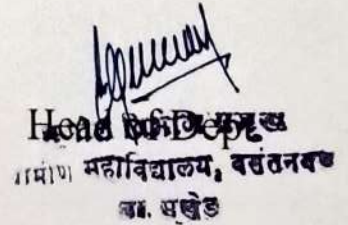 Head of Dept. प्रमुख
ग्रामीण महाविद्यालय, वसंतनगर
ता. मुखेड